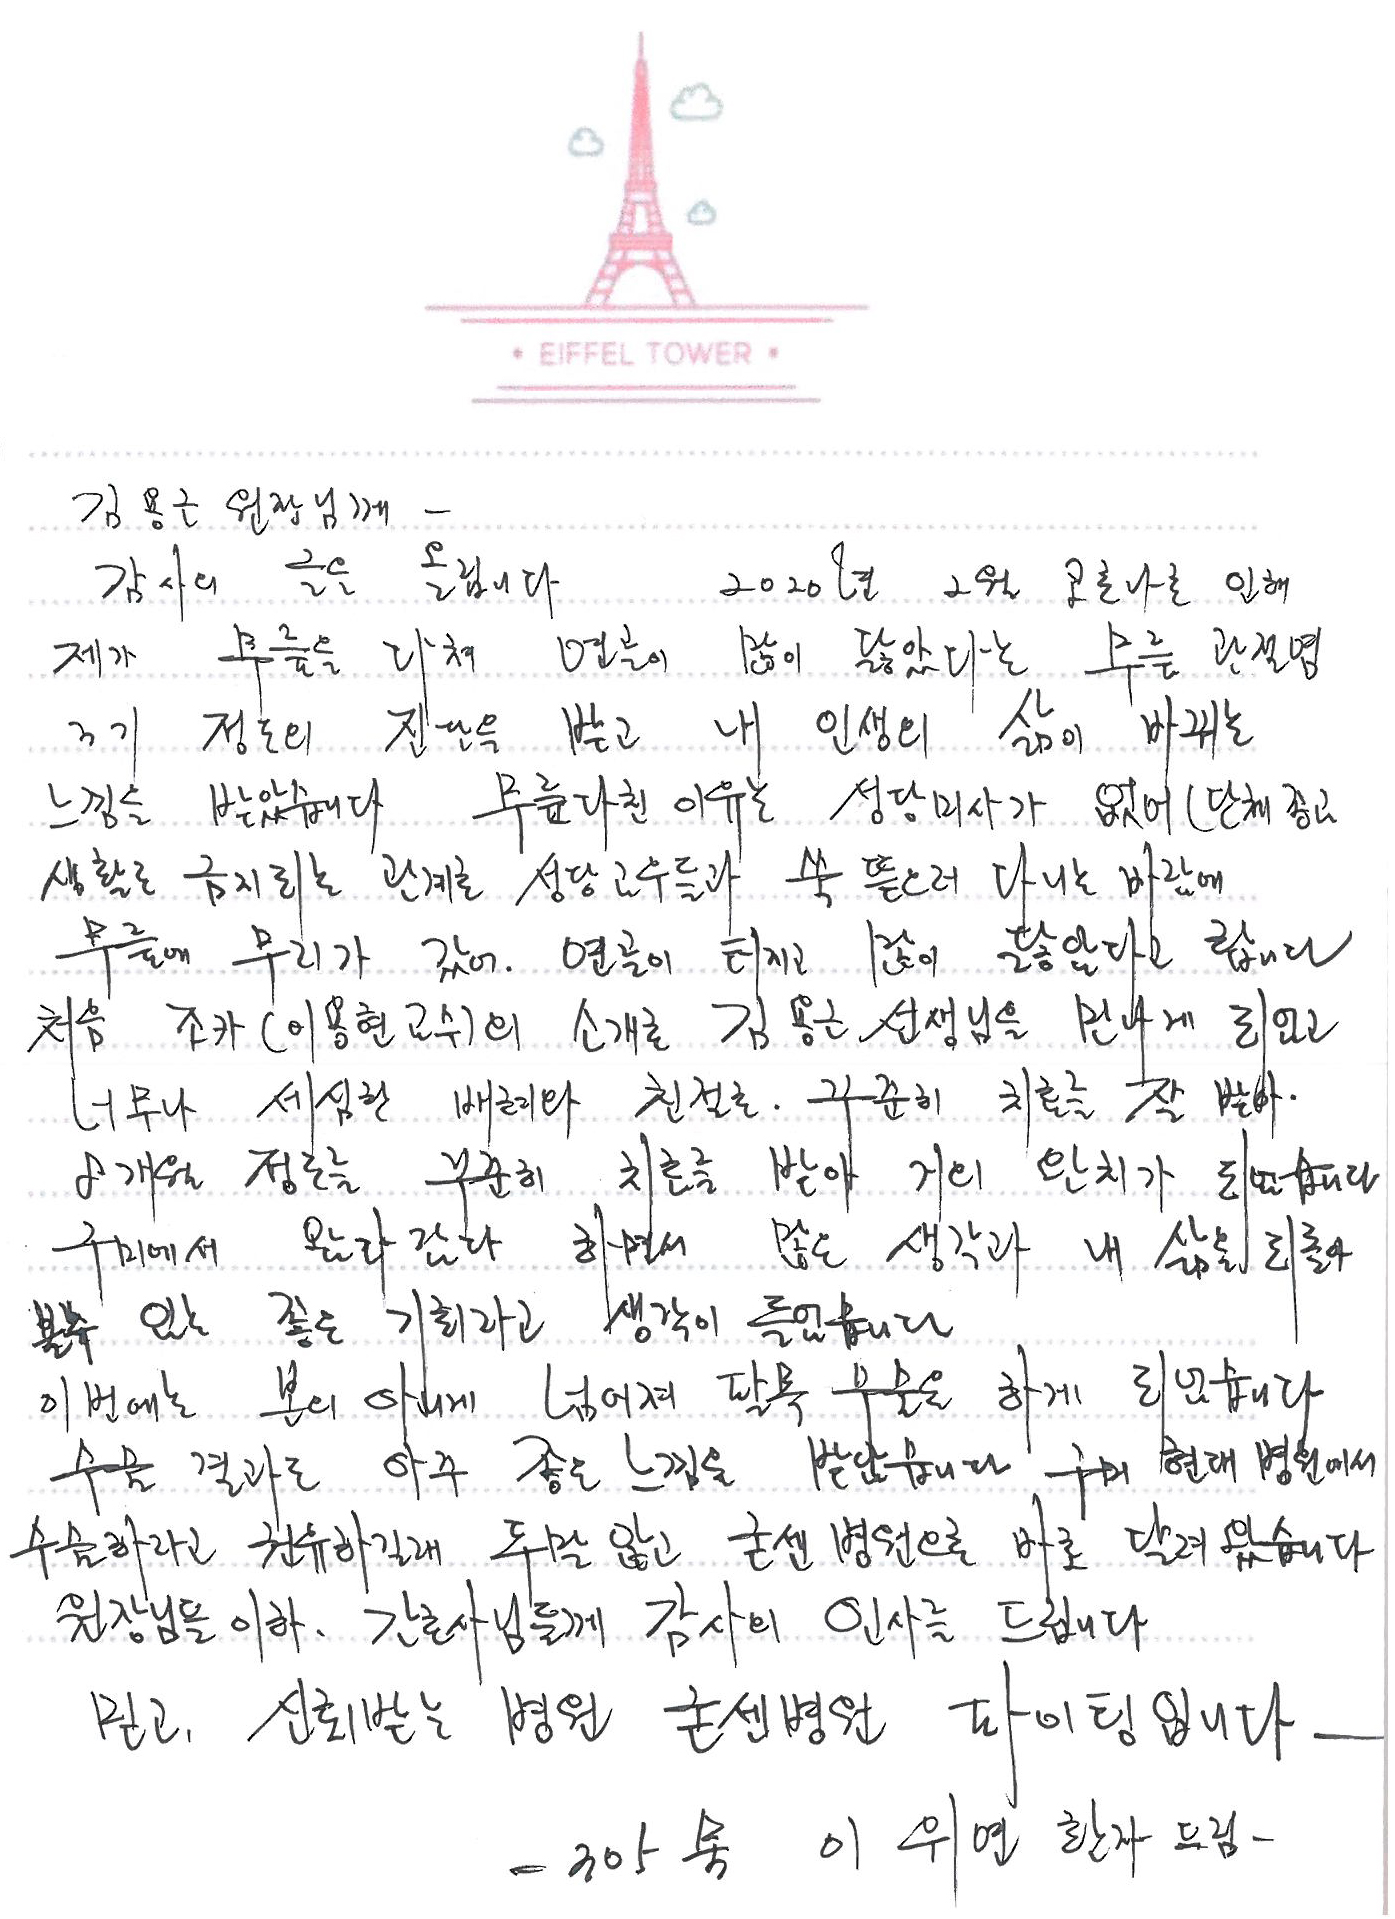 EIFFEL TOWER
김용근 원장님께 -
감사의 글을 올립니다 2020년 2월 코로나로 인해
제가 무릎을 다쳐 연골이 많이 닳았다는 무릎 관절염
3기 정도의 진단을 받고 내 인생의 삶이 바뀌는
느낌을 받았습니다 무릎다친 이유는 성당미사가 없어 (단체 종교
생활로 금지되는 관계로 성당교우들과 쑥 뜯으러 다니는 바람에
무릎에 무리가 갔어. 연골이 터지고 많이 닳았다고 합니다
처음 조카(이용현교수)의 소개로 김용근 선생님을 만나게 되었고
너무나 세심한 배려와 친절로. 꾸준히 치료를 잘 받아.
8개월 정도를 꾸준히 치료를 받아 거의 완치가 되었습니다
구미에서 왔다 갔다 하면서 많은 생각과 내 삶을 되돌아
볼수 있는 좋은 기회라고 생각이 들었습니다
이번에는 본의 아니게 넘어져 팔목 수술을 하게 되었습니다
수술 결과도 아주 좋은 느낌을 받았습니다 구미 현대 병원에서
수술하라고 권유하길래 두말 않고 굳센 병원으로 바로 달려 왔습니다
원장님들 이하. 간호사님들께 감사의 인사를 드립니다
믿고, 신뢰받는 병원 굳센병원 파이팅입니다 -
- 305 호 이 위연 환자 드림 -